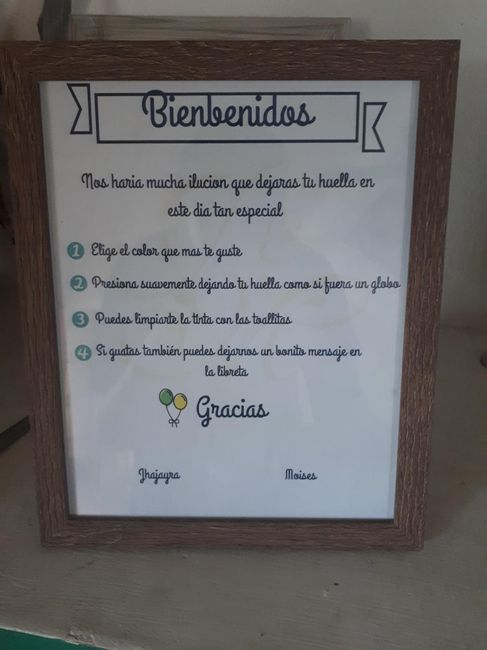 Bienbenidos
Nos haria mucha ilucion que dejaras tu huella en
este dia tan especial
1 Elige el color que mas te guste
2 Presiona suavemente dejando tu huella como si fuera un globo
3 Puedes limpiarte la tinta con las toallitas
4 Si guatas también puedes dejarnos un bonito mensaje en
la libreta
Gracias
Jhajayra Moises